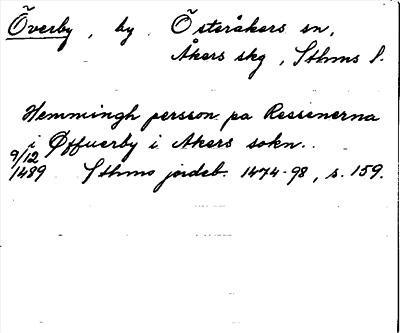 Överby, by. Österåkers sn,
Åkers skg, Sthms l.
Hemmingh persson pa Ressenerna
i Øffuerby i Akers sokn.
9/12 1489 Sthms jordeb. 1474-98, s. 159.